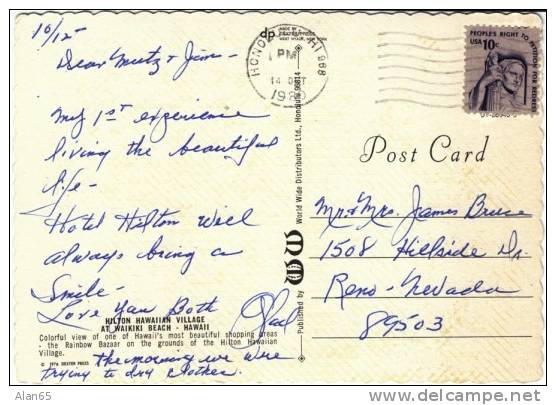 10/12
Dear Mutz & Jim -
My 1st experience
living the beautiful
life -
Hotel Hilton will
always bring a
Smile -
Love You Both
HILTON HAWAIIAN VILLAGE
AT WAIKIKI BEACH - HAWAII
Colorful view of one of Hawaii's most beautiful shopping areas
- the Rainbow Bazaar on the grounds of the Hilton Hawaiian
Village.
© 1976 DEXTER PRESS
The morning we were
trying to dry clothes.
dp
MADE BY
DEXTER PRESS
WEST NYACK, NEW YORK
Published by WW World Wide Distributors Ltd., Honolulu 96814
HONO HI 968
PM
14
PEOPLE'S RIGHT TO PETITION FOR REDRESS
USA 10c
Post Card
Mr. & Mrs. James Bruce
1508 Hillside Dr.
Reno - Nevada
89503
Alan65
http://alan65.delcampe.net